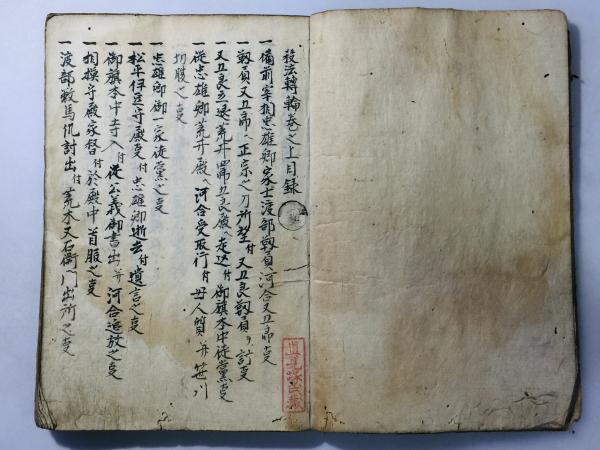 殺法轉輪巻之上目録
一 備前宰相忠雄卿家士渡部靱負河合又五郎事
一 靱負又五郎ヘ正宗之刀所望付又五良靱負ヲ討事
一 又五良立退荒井四郎五良殿ヘ走込付御旗本中徒黨事
一 從忠雄卿荒井殿ヘ河合受取行付母人質并笹川
切腹之事
一 忠雄卿御一家徒黨之事
一 松平伊豆守殿変付忠雄卿逝去付遺言之事
一 御旗本中寺入付從公義御書出并河合追放之事
一 相模守殿家督付於殿中首服之事
一 渡部數馬仇討出付荒木又右衛門出所之事